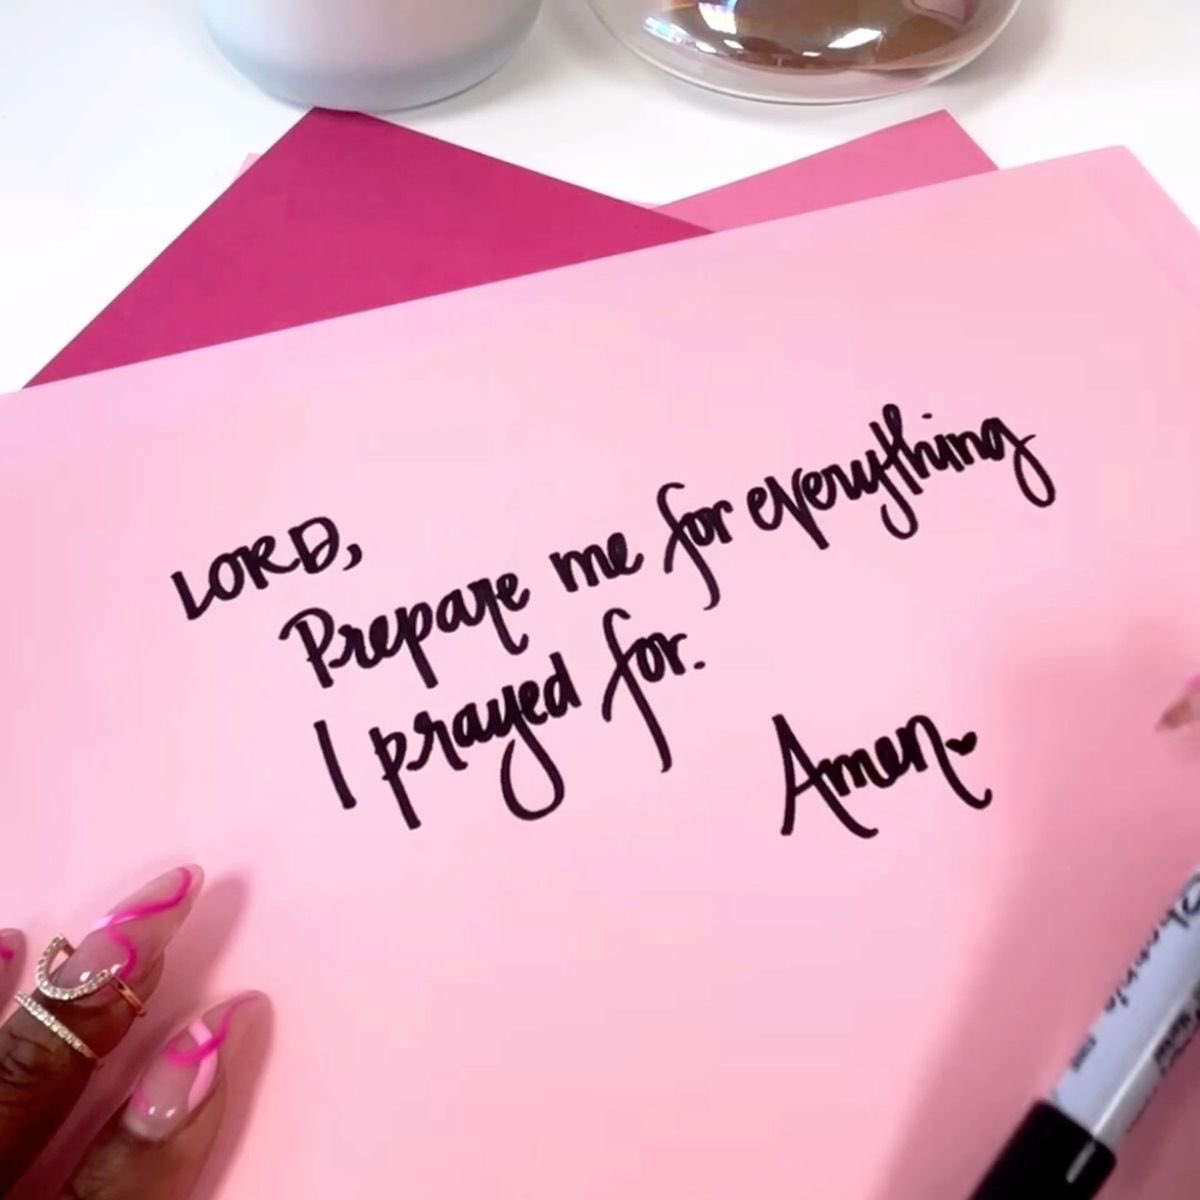 LORD,
Prepare me for everything
I prayed for.
Amen.